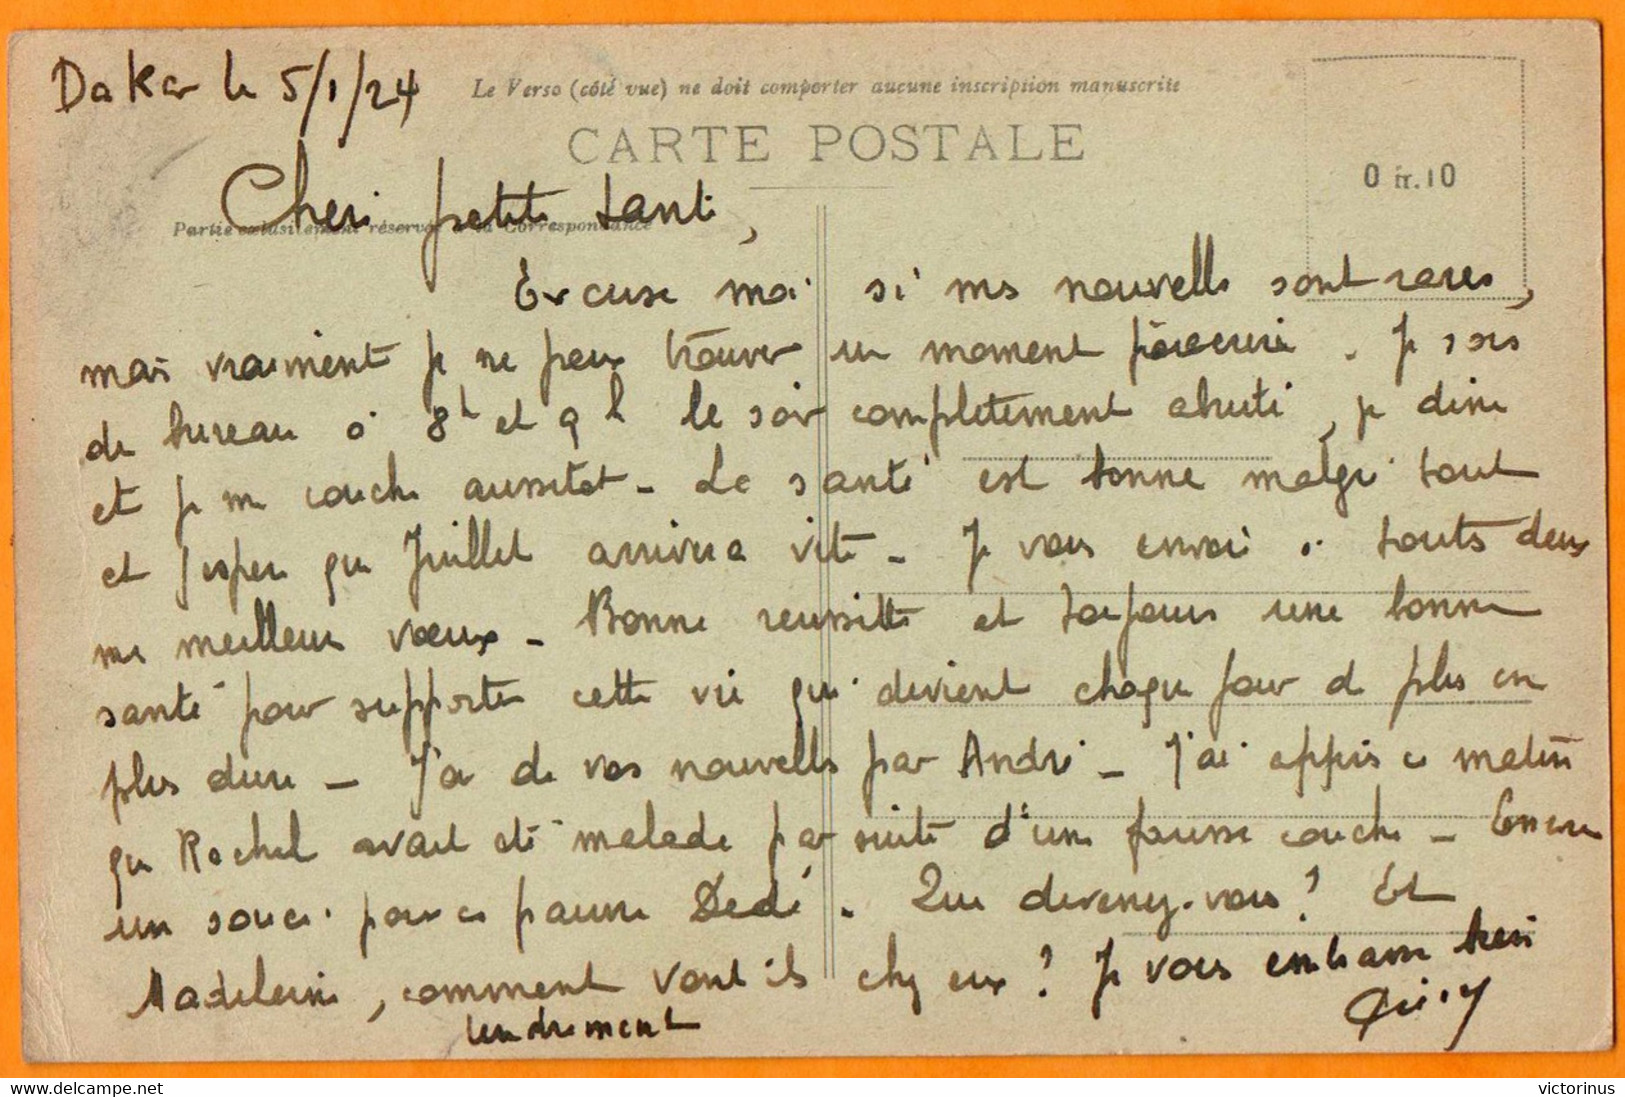 Dakar le 5/1/24
Le Verso (côté vue) ne doit comporter aucune inscription manuscrite
CARTE POSTALE
0 fr.10
Partie exclusivement réservée à la Correspondance
Cheri petite tanti,
Excuse moi si mes nouvelles sont rares,
mais vraiment je ne peux trouver un moment
. Je sors
de bureau à 8h et 9h le soir completement abruti, je dine
et je me couche aussitot - La santé est bonne malgré tout
et j'espere que Juillet arrivera vite - Je vous envoie à touts deux
me meilleurs vœux - Bonne reussitte et toujours une bonne
santé pour supporter cette vie qui devient chaque jour de plus en
plus dure - J'ai de vos nouvelles par André - J'ai appris ce matin
que Rachel avait été malade par suite d'une fausse couche - Encore
un souci pour ce pauvre Dédé. Que devenez-vous? Et
Madeleine, comment vont ils chez eux? Je vous embrasse bien
tendrement